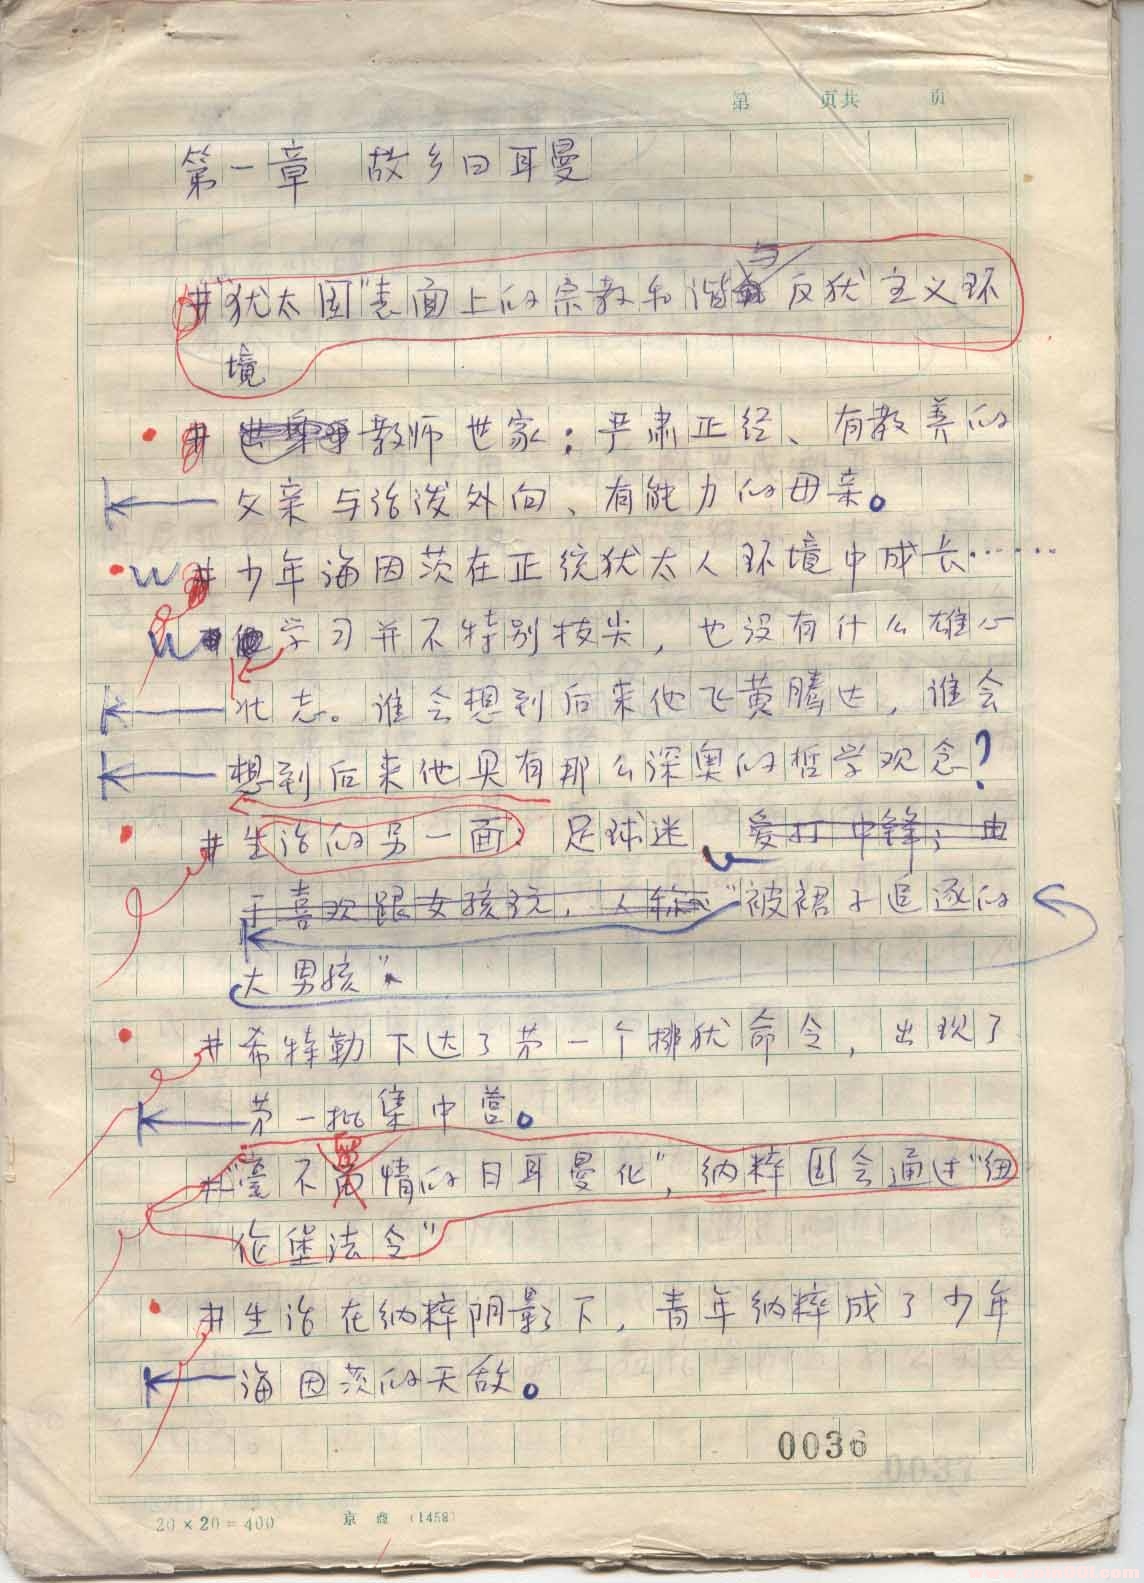 第 页共 页
第一章 故乡日耳曼
#"犹太国"表面上的宗教和谐与反犹"主义环
境
# 教师世家：严肃正经、有教养的
父亲与活泼外向、有能力的母亲。
#少年海因茨在正统犹太人环境中成长……
学习并不特别拔尖，也没有什么雄心
壮志。谁会想到后来他飞黄腾达，谁会
想到后来他具有那么深奥的哲学观念？
#生活的另一面：足球迷、爱打中锋；由
于喜欢跟女孩玩，人称"被裙子追逐的
大男孩"
#希特勒下达了第一个排犹命令，出现了
第一批集中营。
#"毫不留情的日耳曼化"，纳粹国会通过"纽
伦堡法令"
#生活在纳粹阴影下，青年纳粹成了少年
海因茨的天敌。
0036
0037
20×20=400 京 (1458)